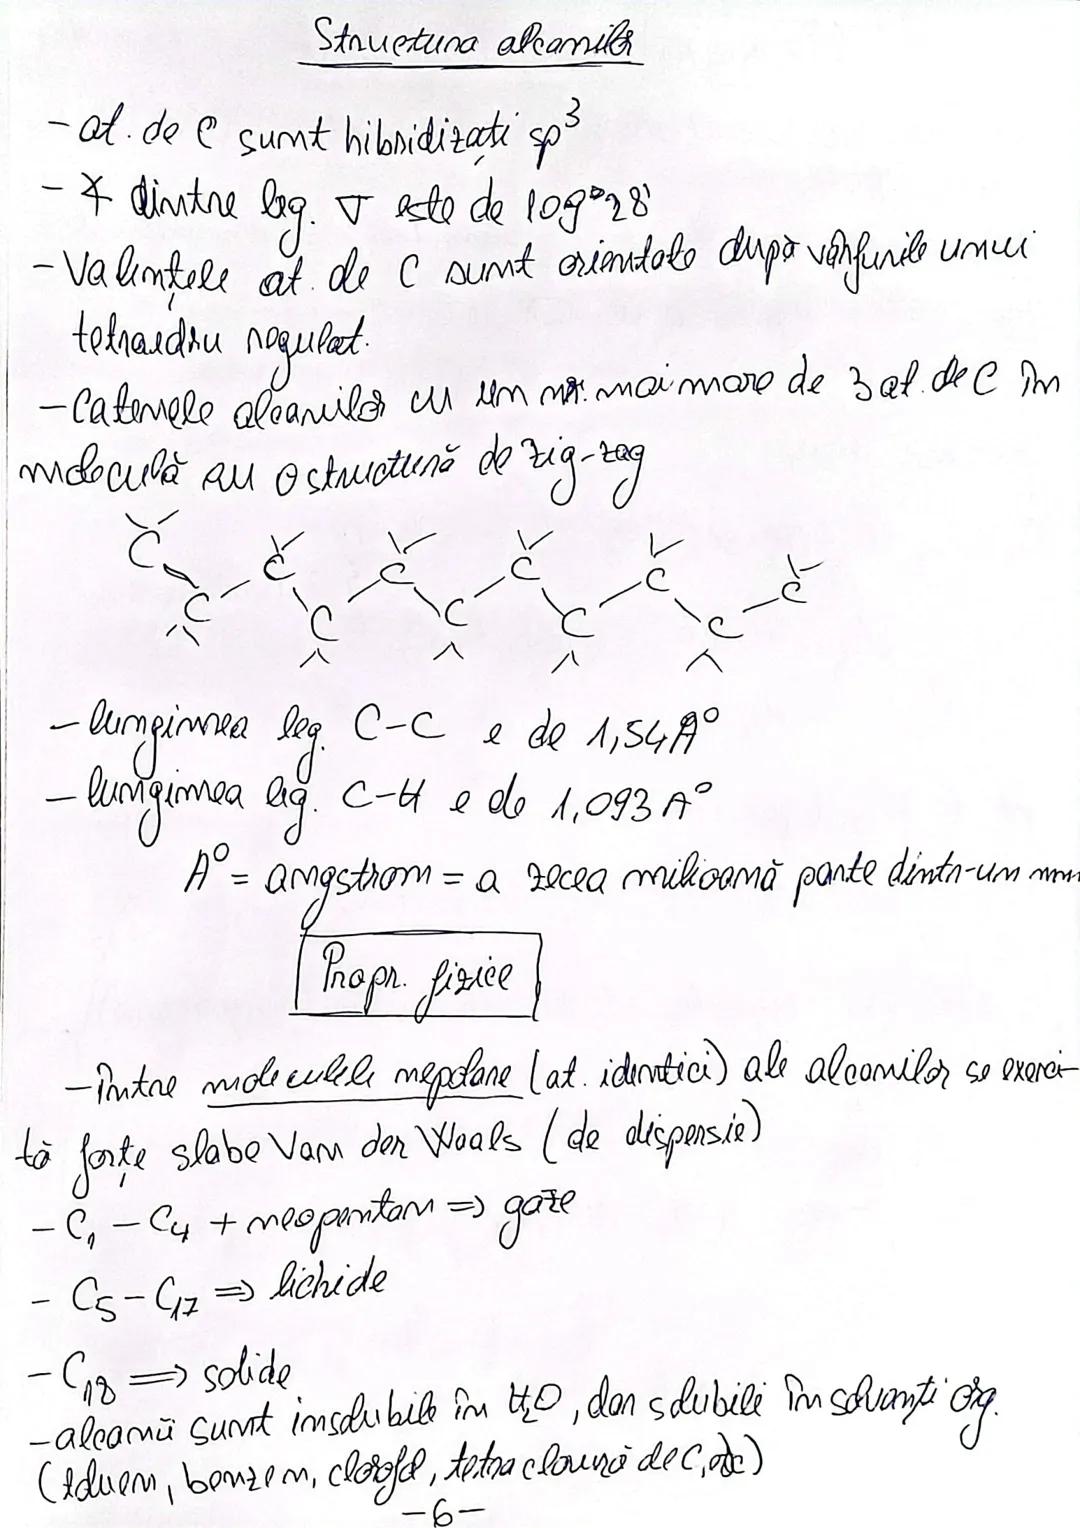 Structura alcanilor
- at. de C sunt hibridizați sp³
- ∢ dintre leg. σ este de 109°28'
- Valențele at. de C sunt orientate după vârfurile unui
tetraedru regulat.
- Catenele alcanilor cu un nr. mai mare de 3 at. de C în
moleculă au o structură de zig-zag
C C C C C C
C C C C C
- lungimea leg. C-C e de 1,54 A°
- lungimea leg. C-H e de 1,093 A°
A° = angstrom = a zecea milioană parte dintr-un mm
Propr. fizice
- între moleculele nepolare (at. identici) ale alcanilor se exerci-
tă forțe slabe Van der Waals (de dispersie)
- C₁ - C₄ + neopentan => gaze
- C₅ - C₁₇ => lichide
- C₁₈ => solide
- alcanii sunt insolubile în H₂O, dar solubili în solvanți org.
(toluen, benzen, clorof, tetraclorură de C, etc)
-6-